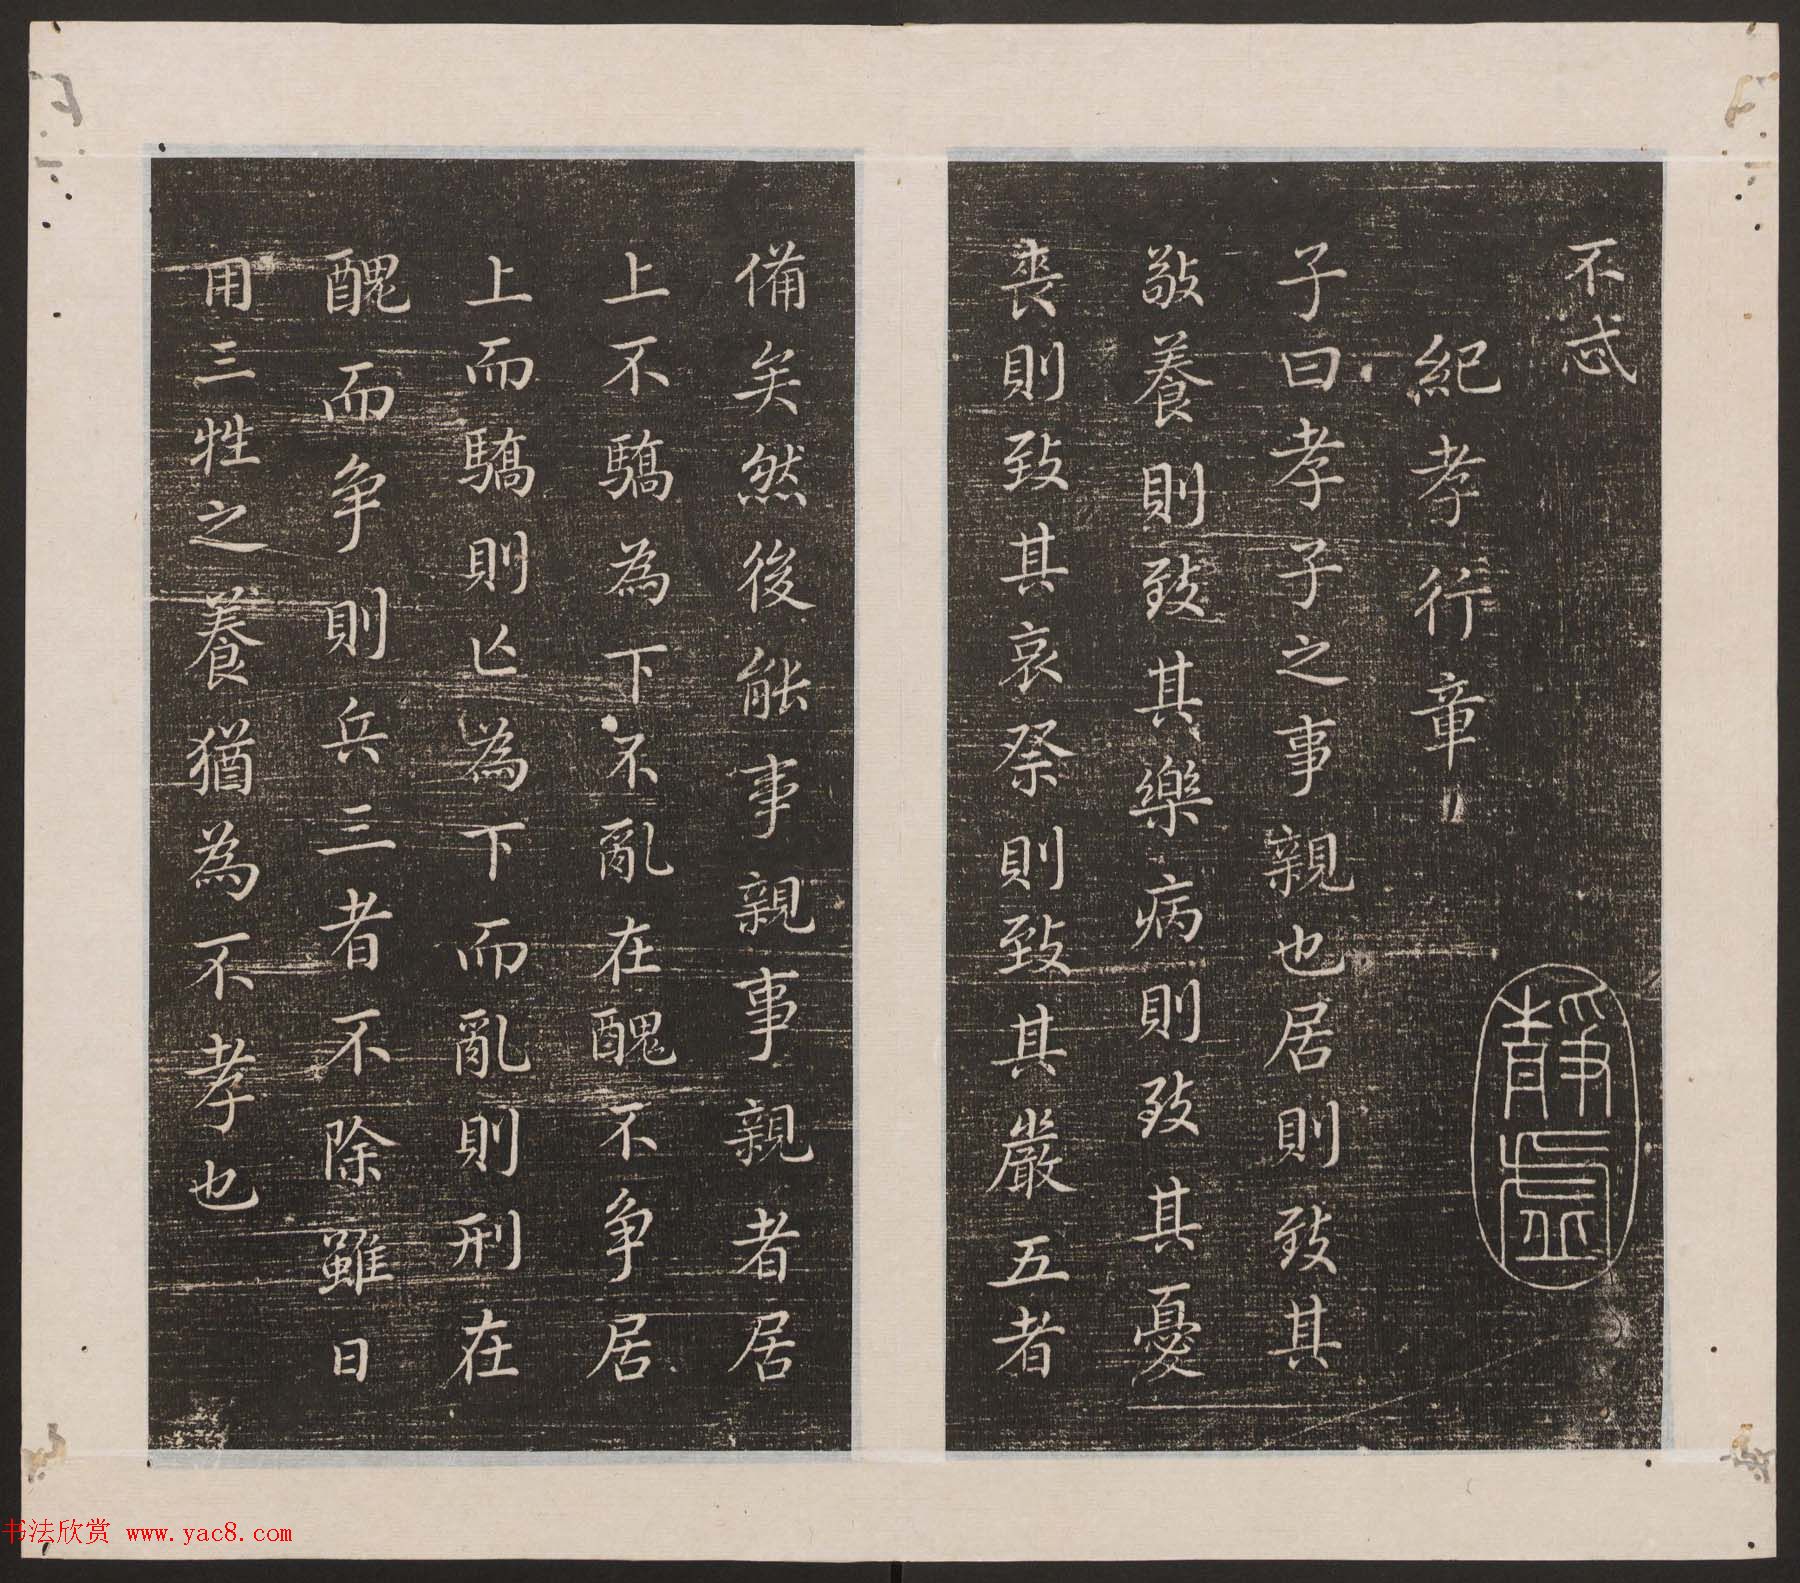 不忒
紀孝行章
子曰孝子之事親也居則致其
敬養則致其樂病則致其憂
喪則致其哀祭則致其嚴五者
備矣然後能事親事親者居
上不驕為下不亂在醜不争居
上而驕則亡為下而亂則刑在
醜而争則兵三者不除雖日
用三牲之養猶為不孝也
靜虛
书法欣赏 www.yac8.com